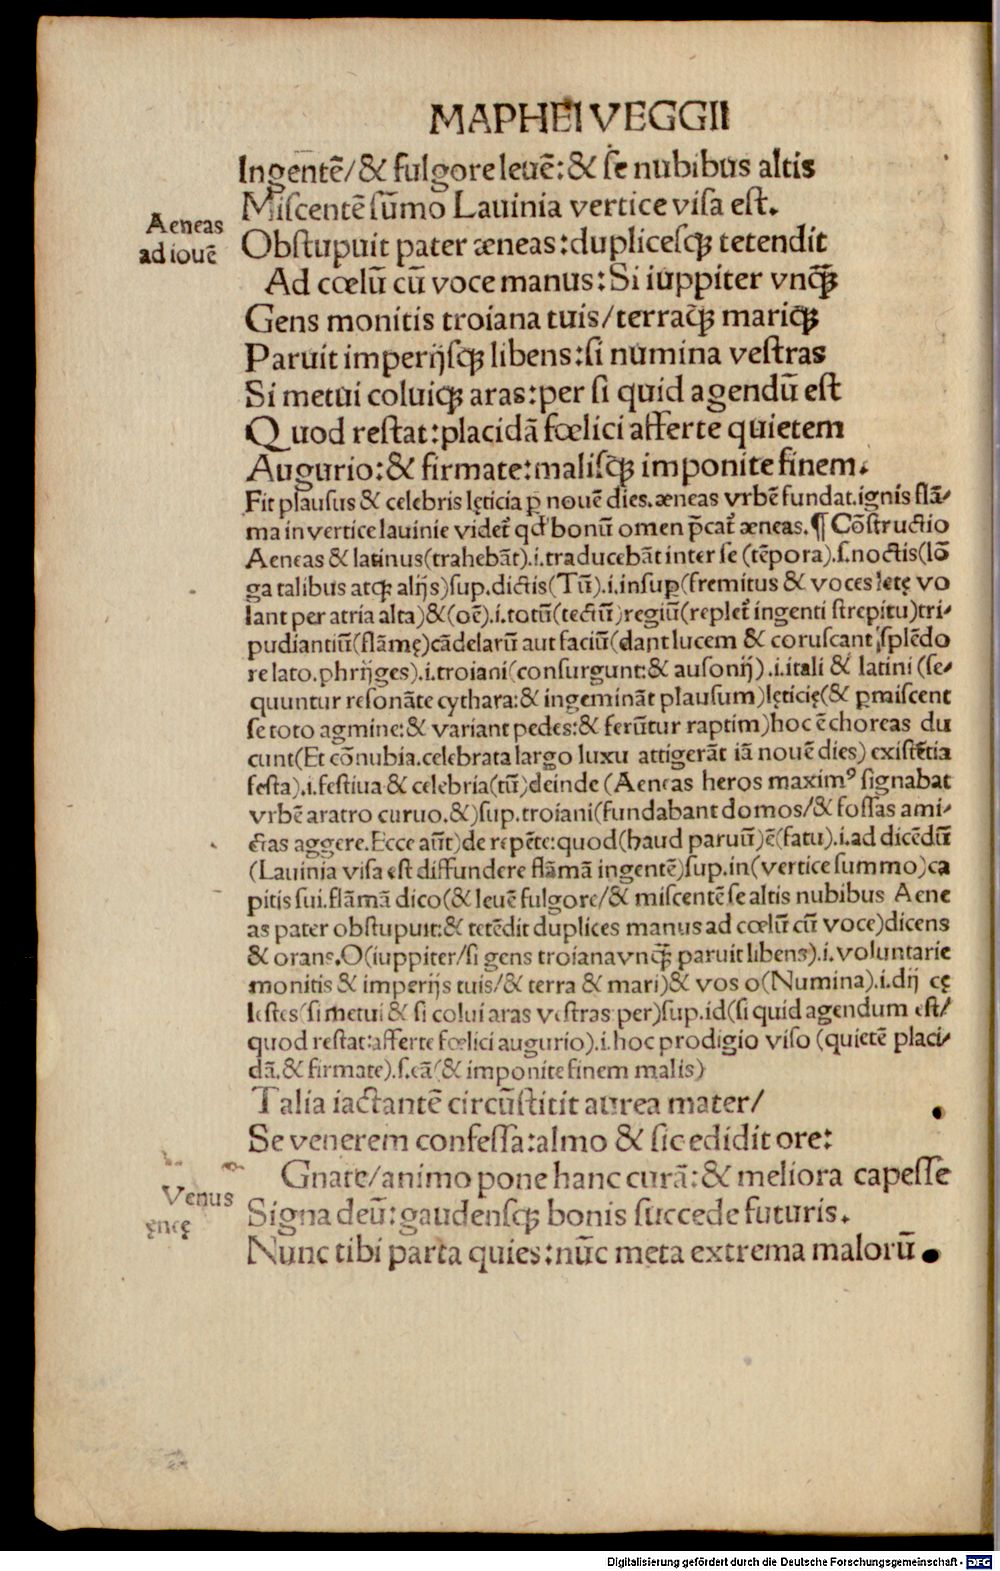 MAPHEI VEGGII
Ingentē/& fulgore leuē: & se nubibus altis
Miscentē sūmo Lauinia vertice visa est.
Aeneas
ad iouē
Obstupuit pater æneas: duplicesq; tetendit
Ad cœlū cū voce manus: Si iuppiter vnq̄;
Gens monitis troiana tuis/terraq̄; mariq̄;
Paruit imperijsq; libens: si numina vestras
Si metui coluiq; aras: per si quid agendū est
Quod restat: placidā fœlici afferte quietem
Augurio: & firmate: malisq̄; imponite finem.
Fit plausus & celebris lęticia ꝑ nouē dies. æneas vrbē fundat. ignis flā⸗
ma in vertice lauinie videt᷑ qd' bonū omen p̄cat᷑ æneas. ¶ Cōstructio
Aeneas & latinus (trahebāt) .i. traducebāt inter se (tēpora) .s. noctis (lō
ga talibus atq; alijs) sup. dictis (Tū) .i. insuꝑ (fremitus & voces letę vo
lant per atria alta) & (oē) .i. totū (tectū) regiū (replet᷑ ingenti strepitu) tri⸗
pudiantiū (flāmę) cādelarū aut faciū (dant lucem & coruscant splēdo
re lato. phrijges) .i. troiani (consurgunt: & ausonij) .i. itali & latini (se⸗
quuntur resonāte cythara: & ingemināt plausum) lęticię (& ꝑmiscent
se toto agmine: & variant pedes: & ferūtur raptim) hoc ē choreas du
cunt (Et cōnubia. celebrata largo luxu attigerāt iā nouē dies) existētia
festa) .i. festiua & celebria (tū) deinde (Aeneas heros maximꝰ signabat
vrbē aratro curuo. &) sup. troiani (fundabant domos/& fossas ami⸗
ctas aggere. Ecce aūt) de repēte: quod (haud paruū) ē (fatu) .i. ad dicēdū
(Lauinia visa est diffundere flāmā ingentē) sup. in (vertice summo) ca
pitis sui. flāmā dico (& leuē fulgore/& miscentē se altis nubibus Aene
as pater obstupuit: & tetēdit duplices manus ad cœlū cū voce) dicens
& orans. O (iuppiter/si gens troiana vnq̄; paruit libens) .i. voluntarie
monitis & imperijs tuis/& terra & mari) & vos o (Numina) .i. dij cę
lestes (si metui & si colui aras vestras per) sup. id (si quid agendum est/
quod restat: afferte fœlici augurio) .i. hoc prodigio viso (quietē placi⸗
dā. & firmate) .s. eā (& imponite finem malis)
Talia iactantē circūstitit aurea mater/
Se venerem confessa: almo & sic edidit ore:
Gnate/animo pone hanc curā: & meliora capesse
Venus
ęnęę
Signa deū: gaudensq; bonis succede futuris.
Nunc tibi parta quies: nūc meta extrema malorū.
Digitalisierung gefördert durch die Deutsche Forschungsgemeinschaft - DFG